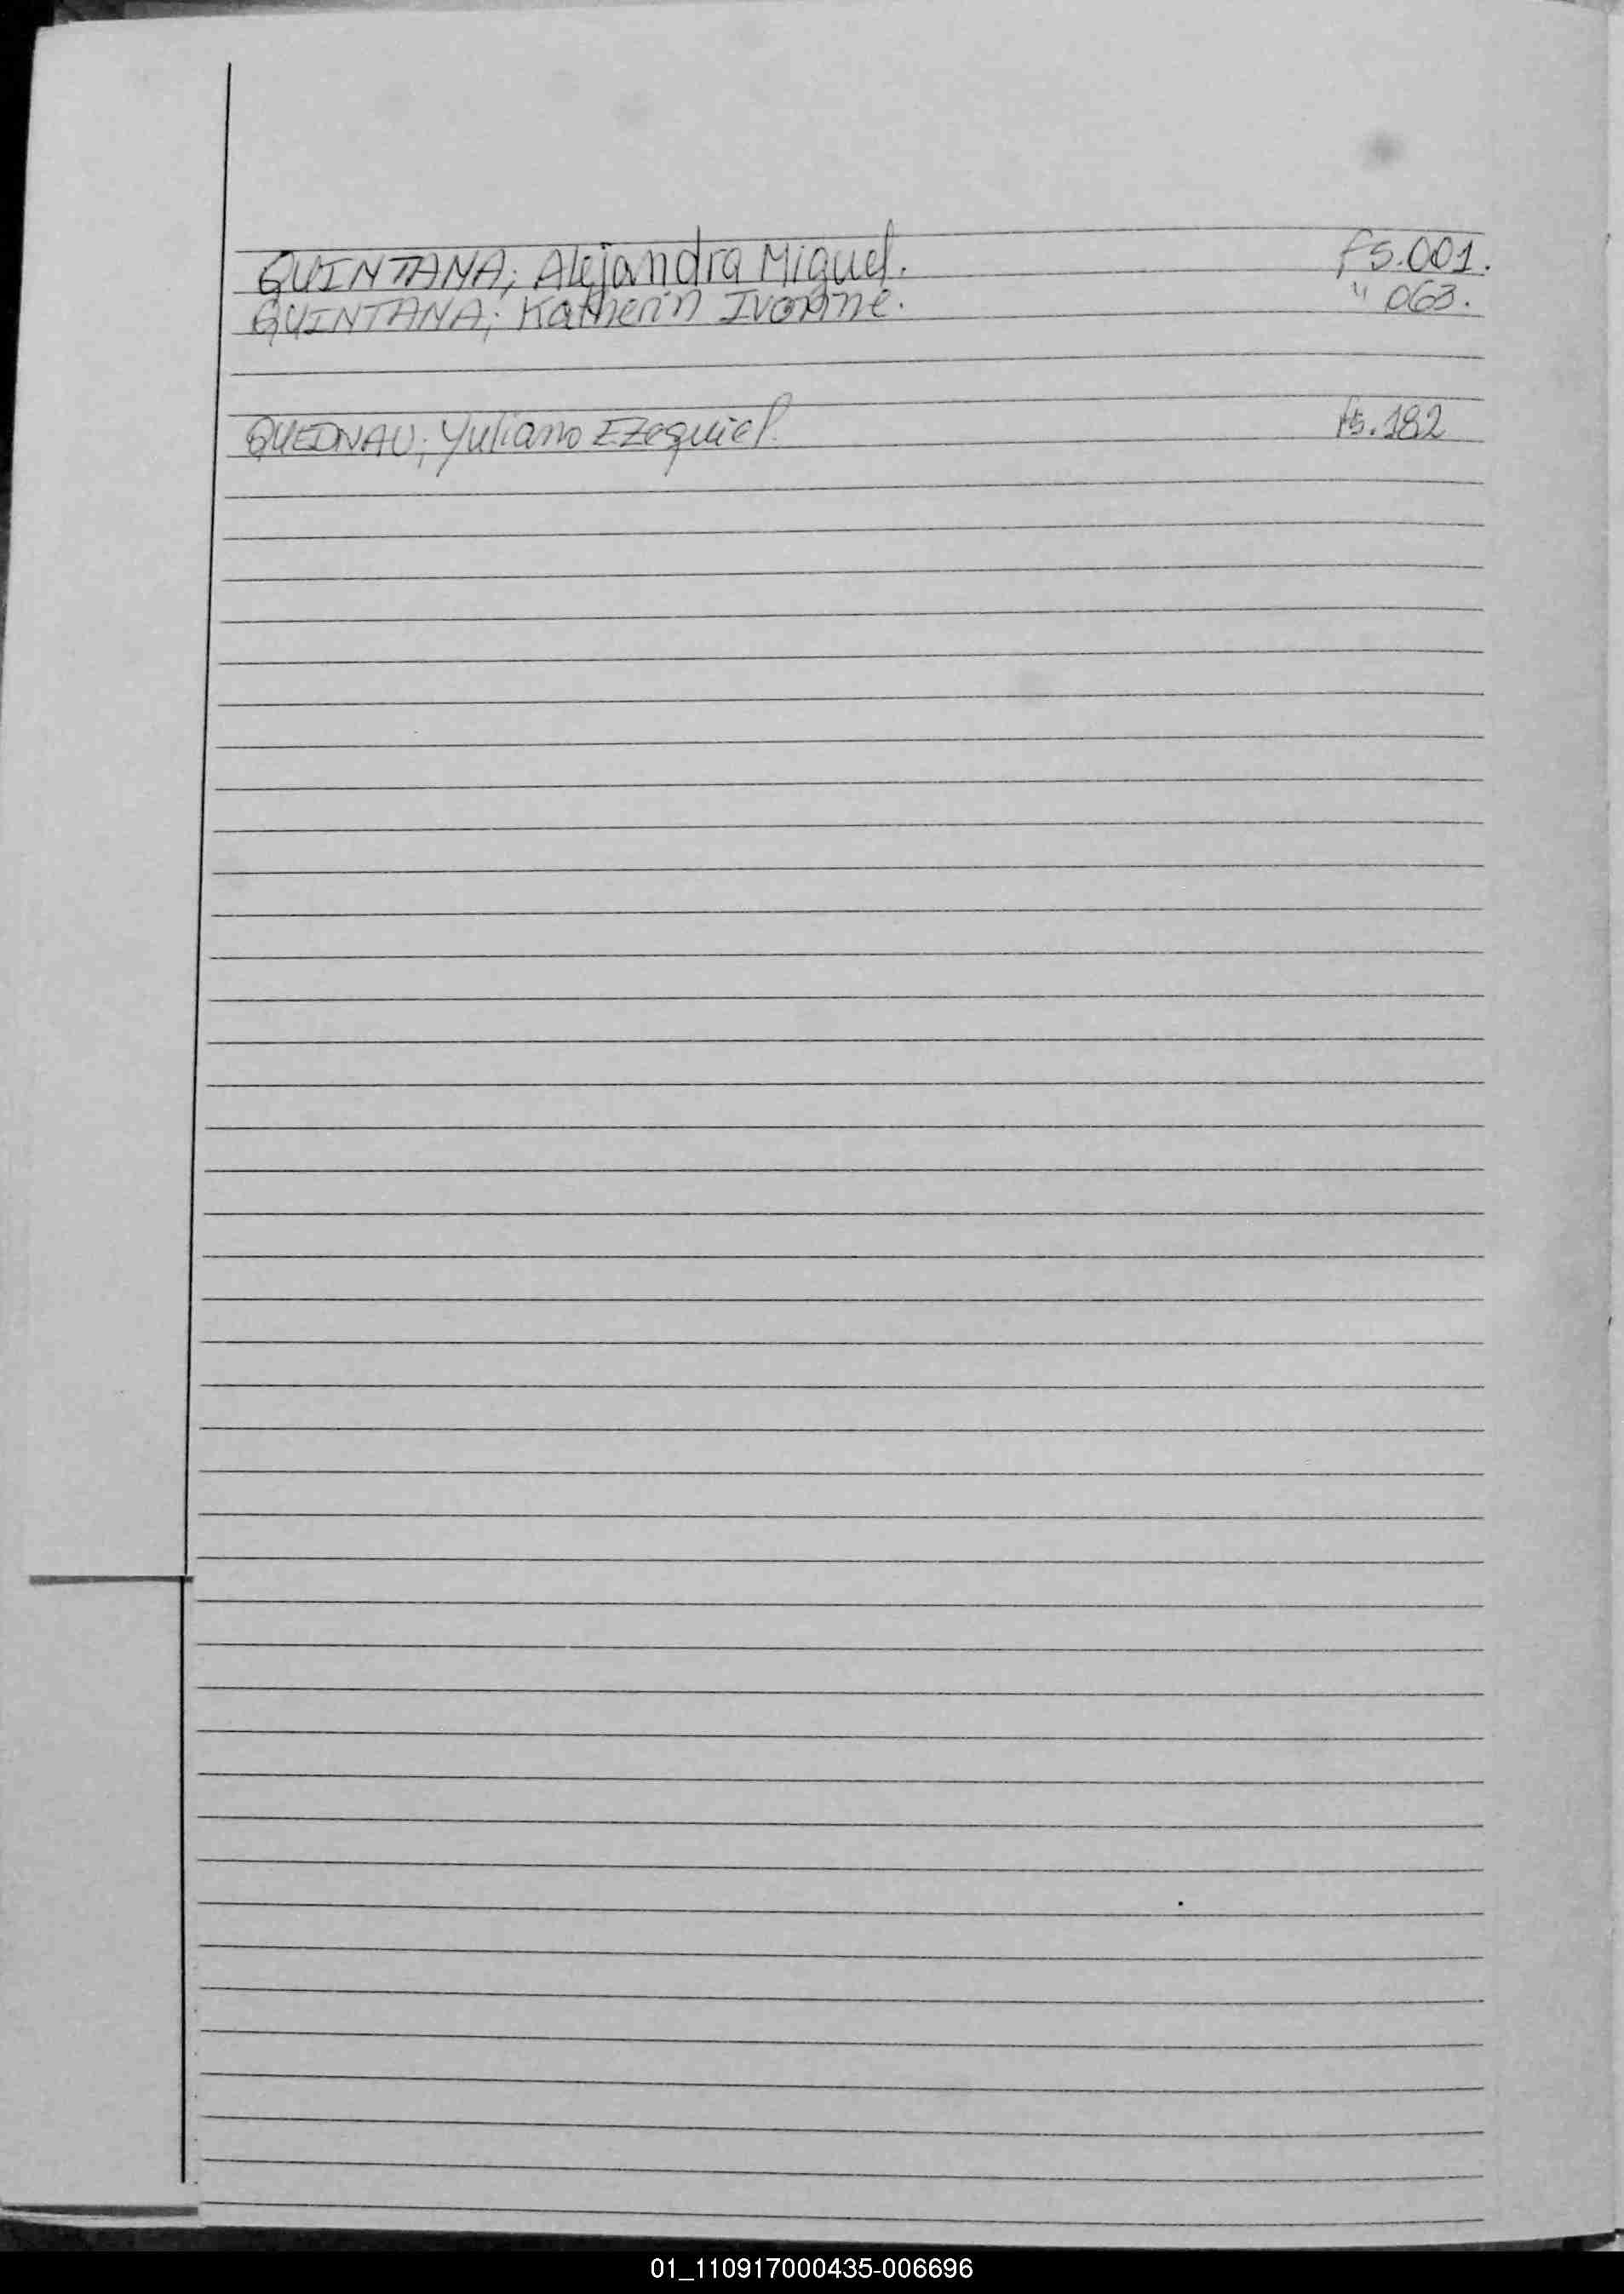 QUINTANA; Alejandra Miguel. fs.001.
QUINTANA; Katherin Ivonne. " 063.
QUEDNAU; Yuliano Ezequiel. fs.182
01_110917000435-006696